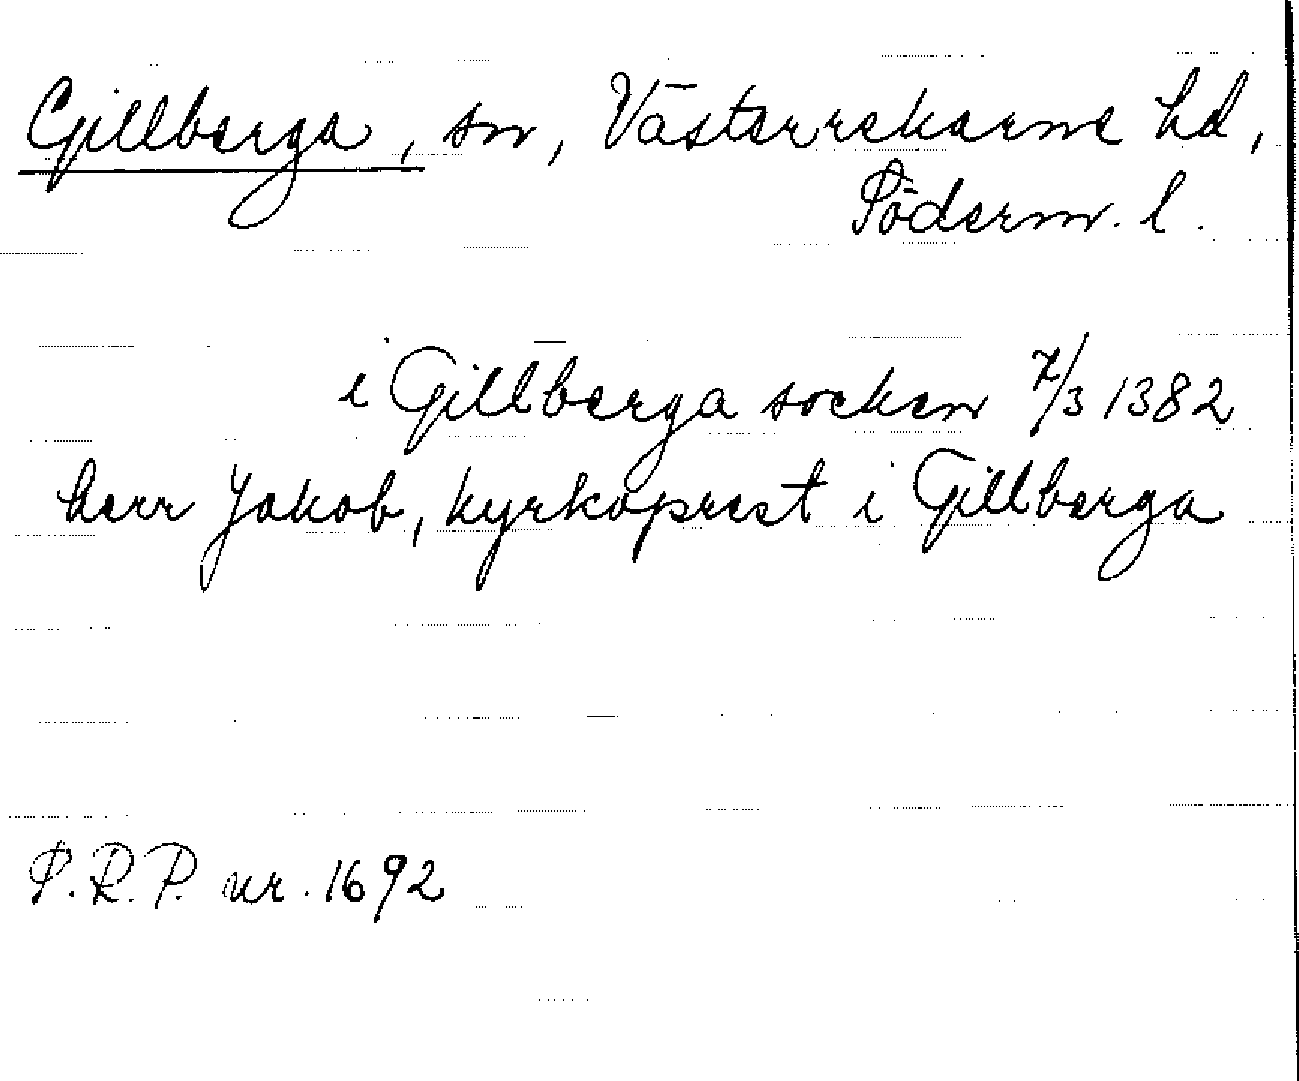 Gillberga, sn, Västerrekarne hd,
Söderm. l.
i Gillberga socken 7/3 1382
herr Jakob, kyrkoprest i Gillberga
S.R.P. nr. 1692